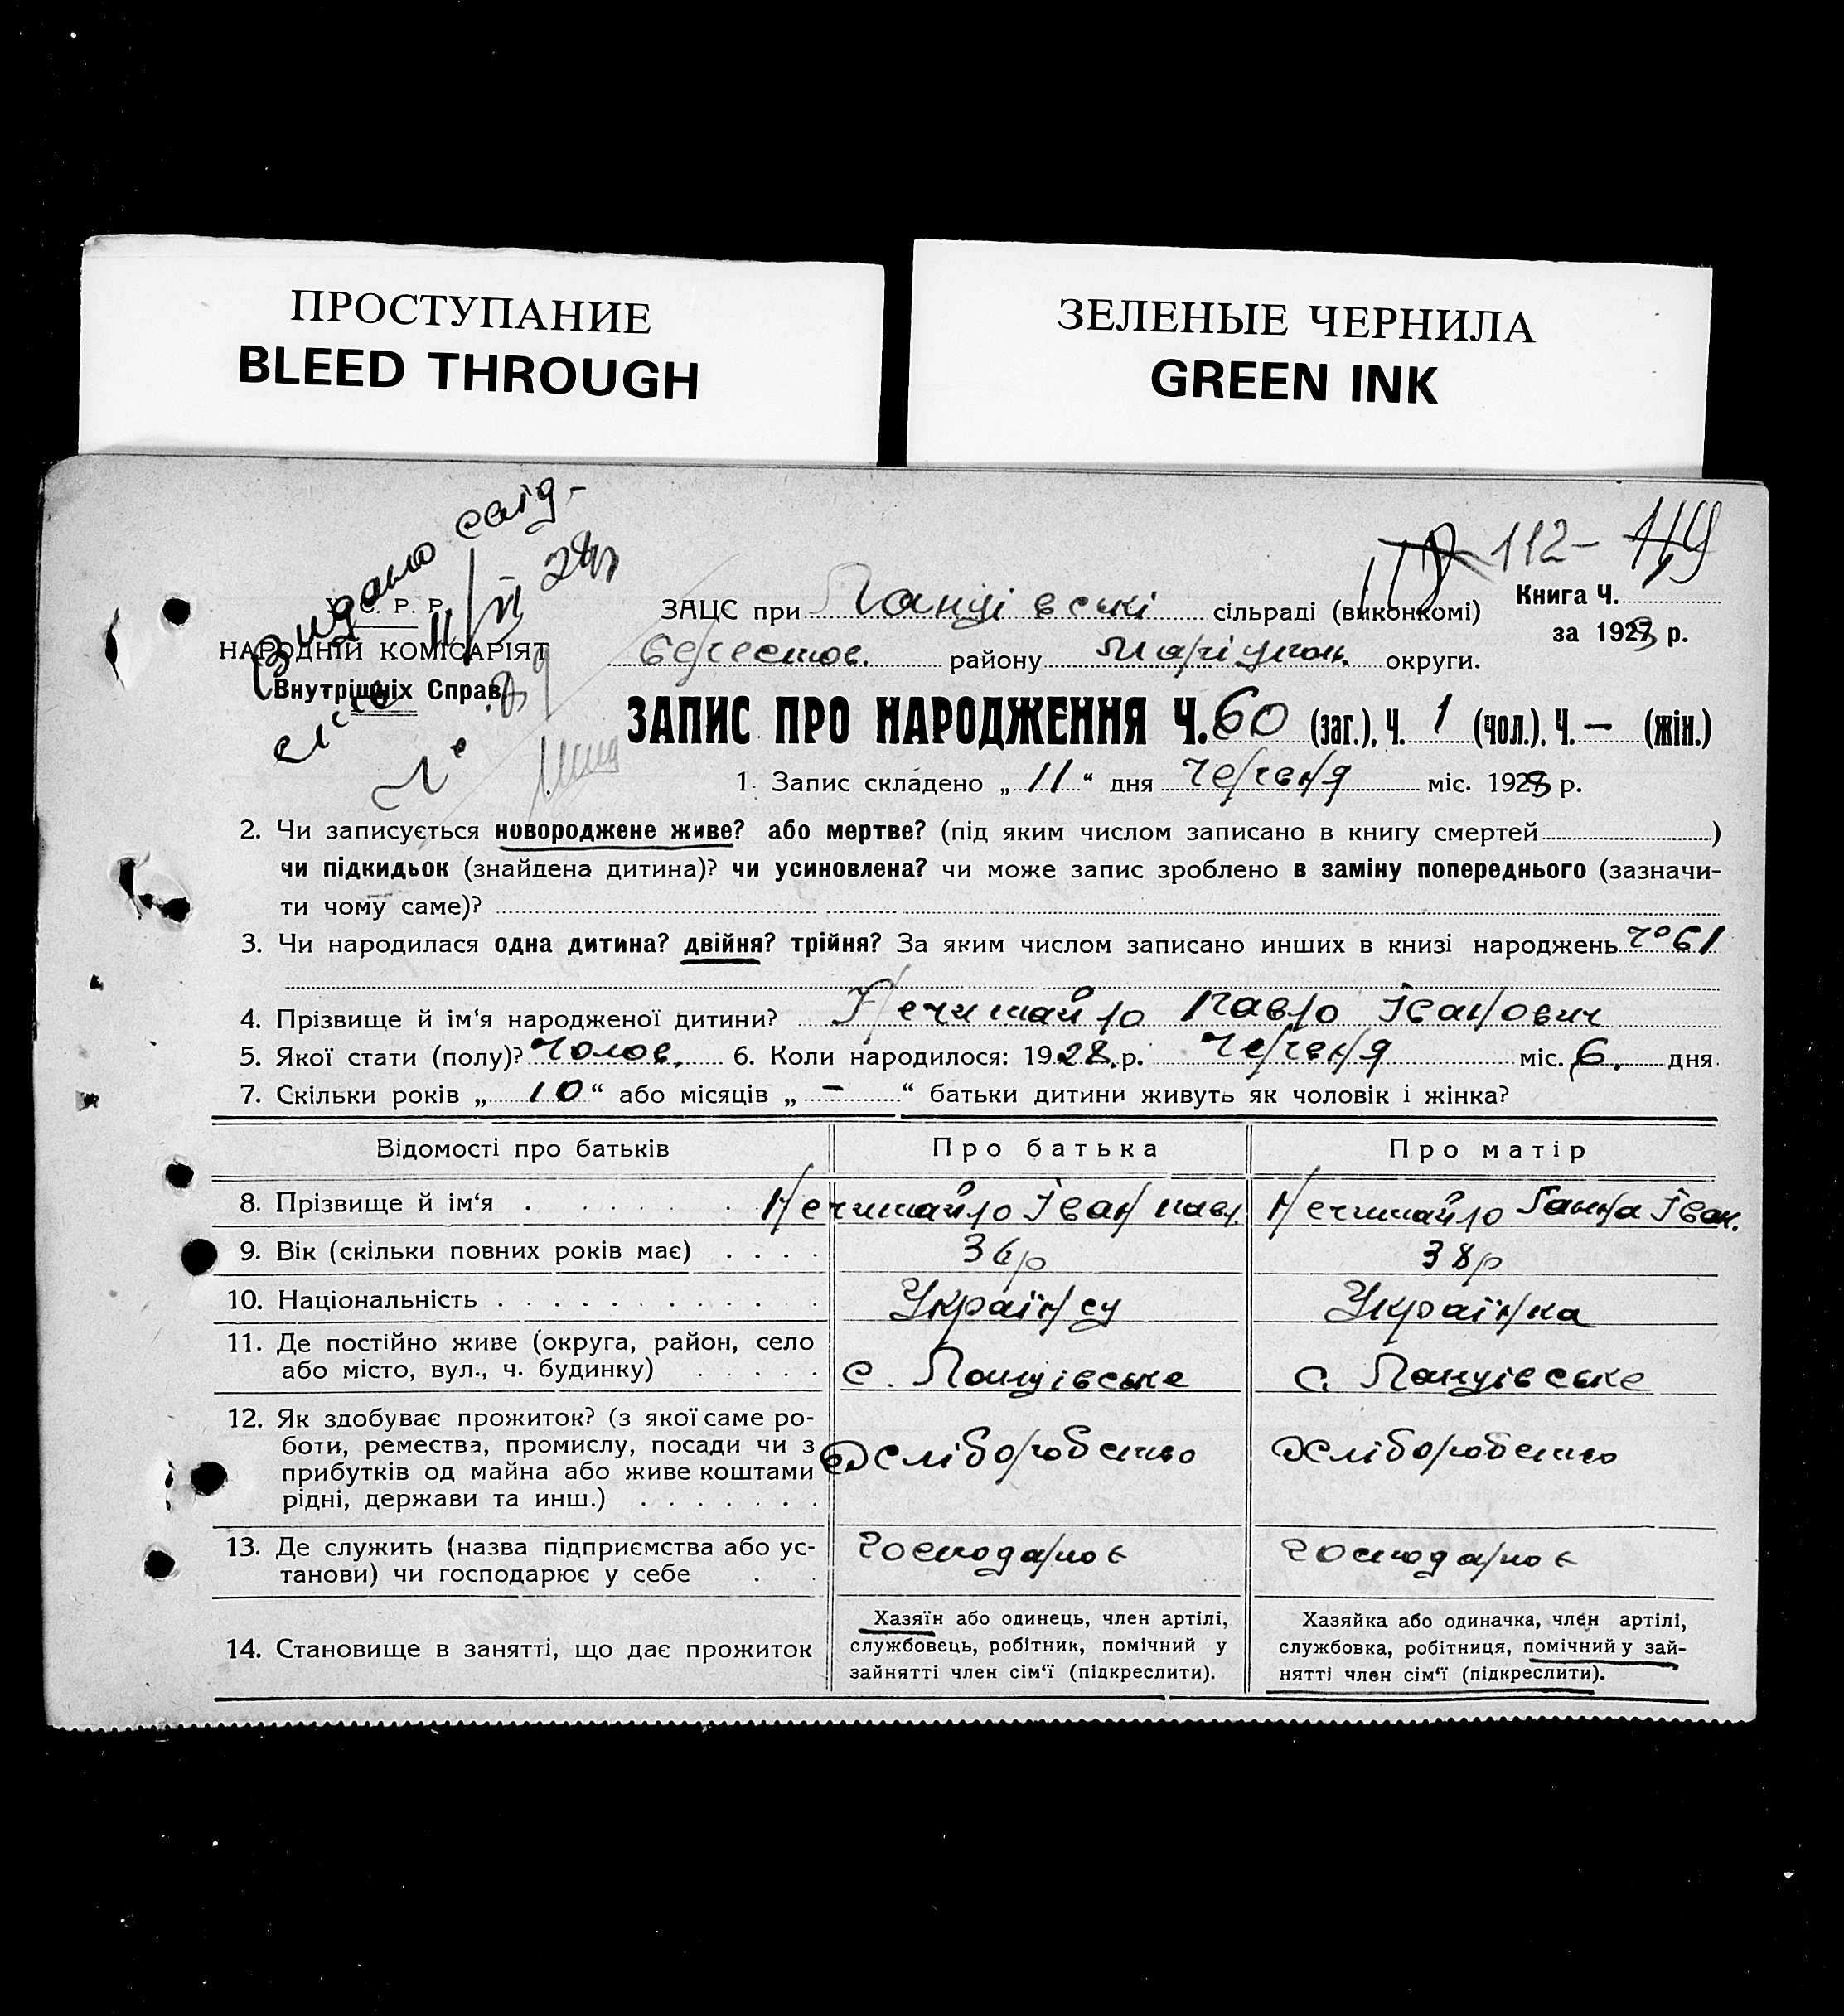 ПРОСТУПАНИЕ
BLEED THROUGH
ЗЕЛЕНЫЕ ЧЕРНИЛА
GREEN INK
Видано свід-
11/VI 28р
112- 119
У. С. Р. Р.
НАРОДНІЙ КОМІСАРІЯТ
Внутрішніх Справ
ЗАЦС при Панціївські сільраді (виконкомі)
Книга Ч.
за 1928 р.
Берестов. району Маріупол. округи.
ЗАПИС ПРО НАРОДЖЕННЯ Ч. 60 (заг.), Ч. 1 (чол.). Ч. — (жін.)
1. Запис складено „ 11 “ дня Червня міс. 1928 р.
2. Чи записується новороджене живе? або мертве? (під яким числом записано в книгу смертей )
чи підкидьок (знайдена дитина)? чи усиновлена? чи може запис зроблено в заміну попереднього (зазначи-
ти чому саме)?
3. Чи народилася одна дитина? двійня? трійня? За яким числом записано инших в книзі народжень 61
4. Прізвище й ім‘я народженої дитини? Нечипайло Павло Іванович
5. Якої стати (полу)? Чолов. 6. Коли народилося: 1928. р. Червня міс. 6. дня
7. Скільки років „ 10 “ або місяців „ — “ батьки дитини живуть як чоловік і жінка?
Відомості про батьків Про батька Про матір
8. Прізвище й ім‘я Нечипайло Іван Павл. Нечипайло Ганна Іван.
9. Вік (скільки повних років має) 36р 38р
10. Національність Українец Українка
11. Де постійно живе (округа, район, село
або місто, вул., ч. будинку) с. Панціївське с. Панціївське
12. Як здобуває прожиток? (з якої саме ро-
боти, ремества, промислу, посади чи з
прибутків од майна або живе коштами
рідні, держави та инш.) Хліборобство Хліборобство
13. Де служить (назва підприємства або ус-
танови) чи господарює у себе господарює господарює
14. Становище в занятті, що дає прожиток
Хазяїн або одинець, член артілі,
службовець, робітник, помічний у
зайнятті член сім‘ї (підкреслити).
Хазяйка або одиначка, член артілі,
службовка, робітниця, помічний у зай-
нятті член сім‘ї (підкреслити).